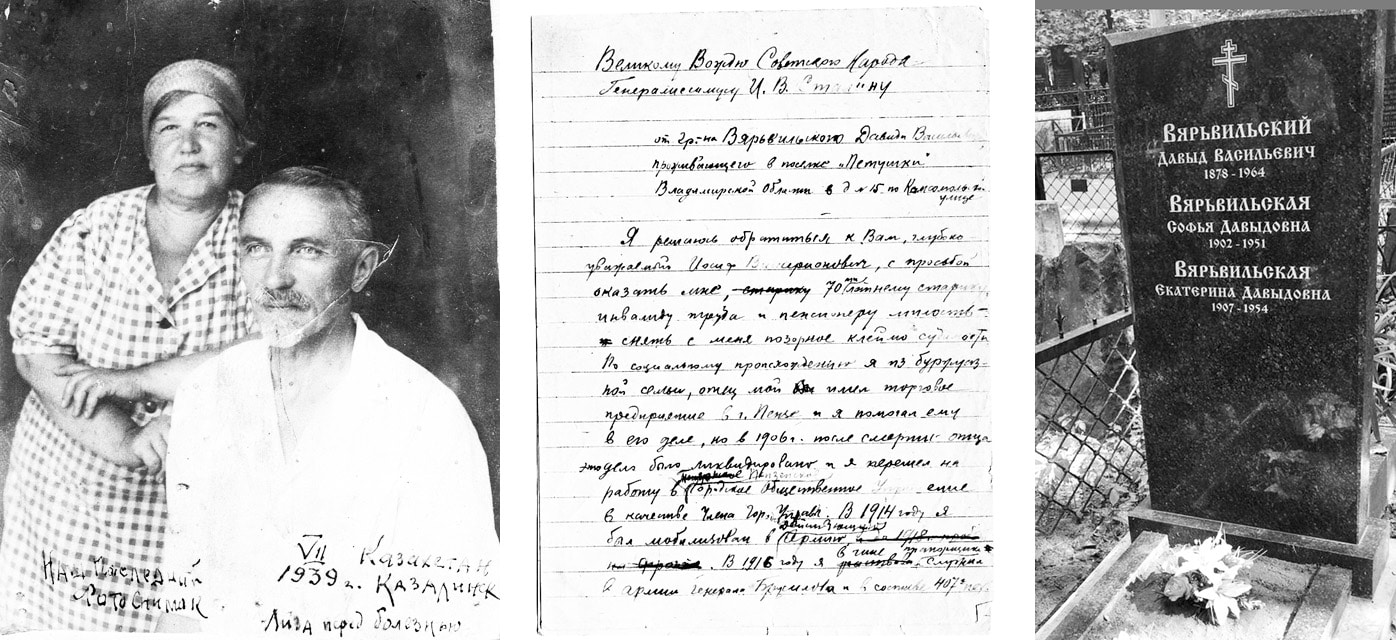 Наш Последний
Фото Снимок
VII Казахстан
1939 г. Казалинск
Лиза перед болезнью
Великому Вождю Советского Народа
Генералиссимусу И. В. Сталину
от Гр-на Вярьвильского Давида
проживающего в поселке „Петушки"
Владимирской Обл-ти в д № 15 по
улице
Я решаюсь обратиться к Вам, глубоко
уважаемый Иосиф Виссарионович, с просьбой
оказать мне, старику 70ти летнему старику,
инвалиду труда и пенсионеру милость-
снять с меня позорное клеймо судимости
По социальному происхождению я из буржуаз-
ной семьи, отец мой имел торговое
предприятие в г. Пензе и я помогал ему
в его деле, но в 1906 г. после смерти отца
это дело было ликвидировано и я перешел на
работу в Городское Общественное
в качестве Члена Гор. Управы. В 1914 году я
был мобилизован в Армию
В 1916 году я в чине прапорщика служил
в армии Генерала Брусилова и в составе 407го
Вярьвильский
Давыд Васильевич
1878 - 1964
Вярьвильская
Софья Давыдовна
1902 - 1951
Вярьвильская
Екатерина Давыдовна
1907 - 1954